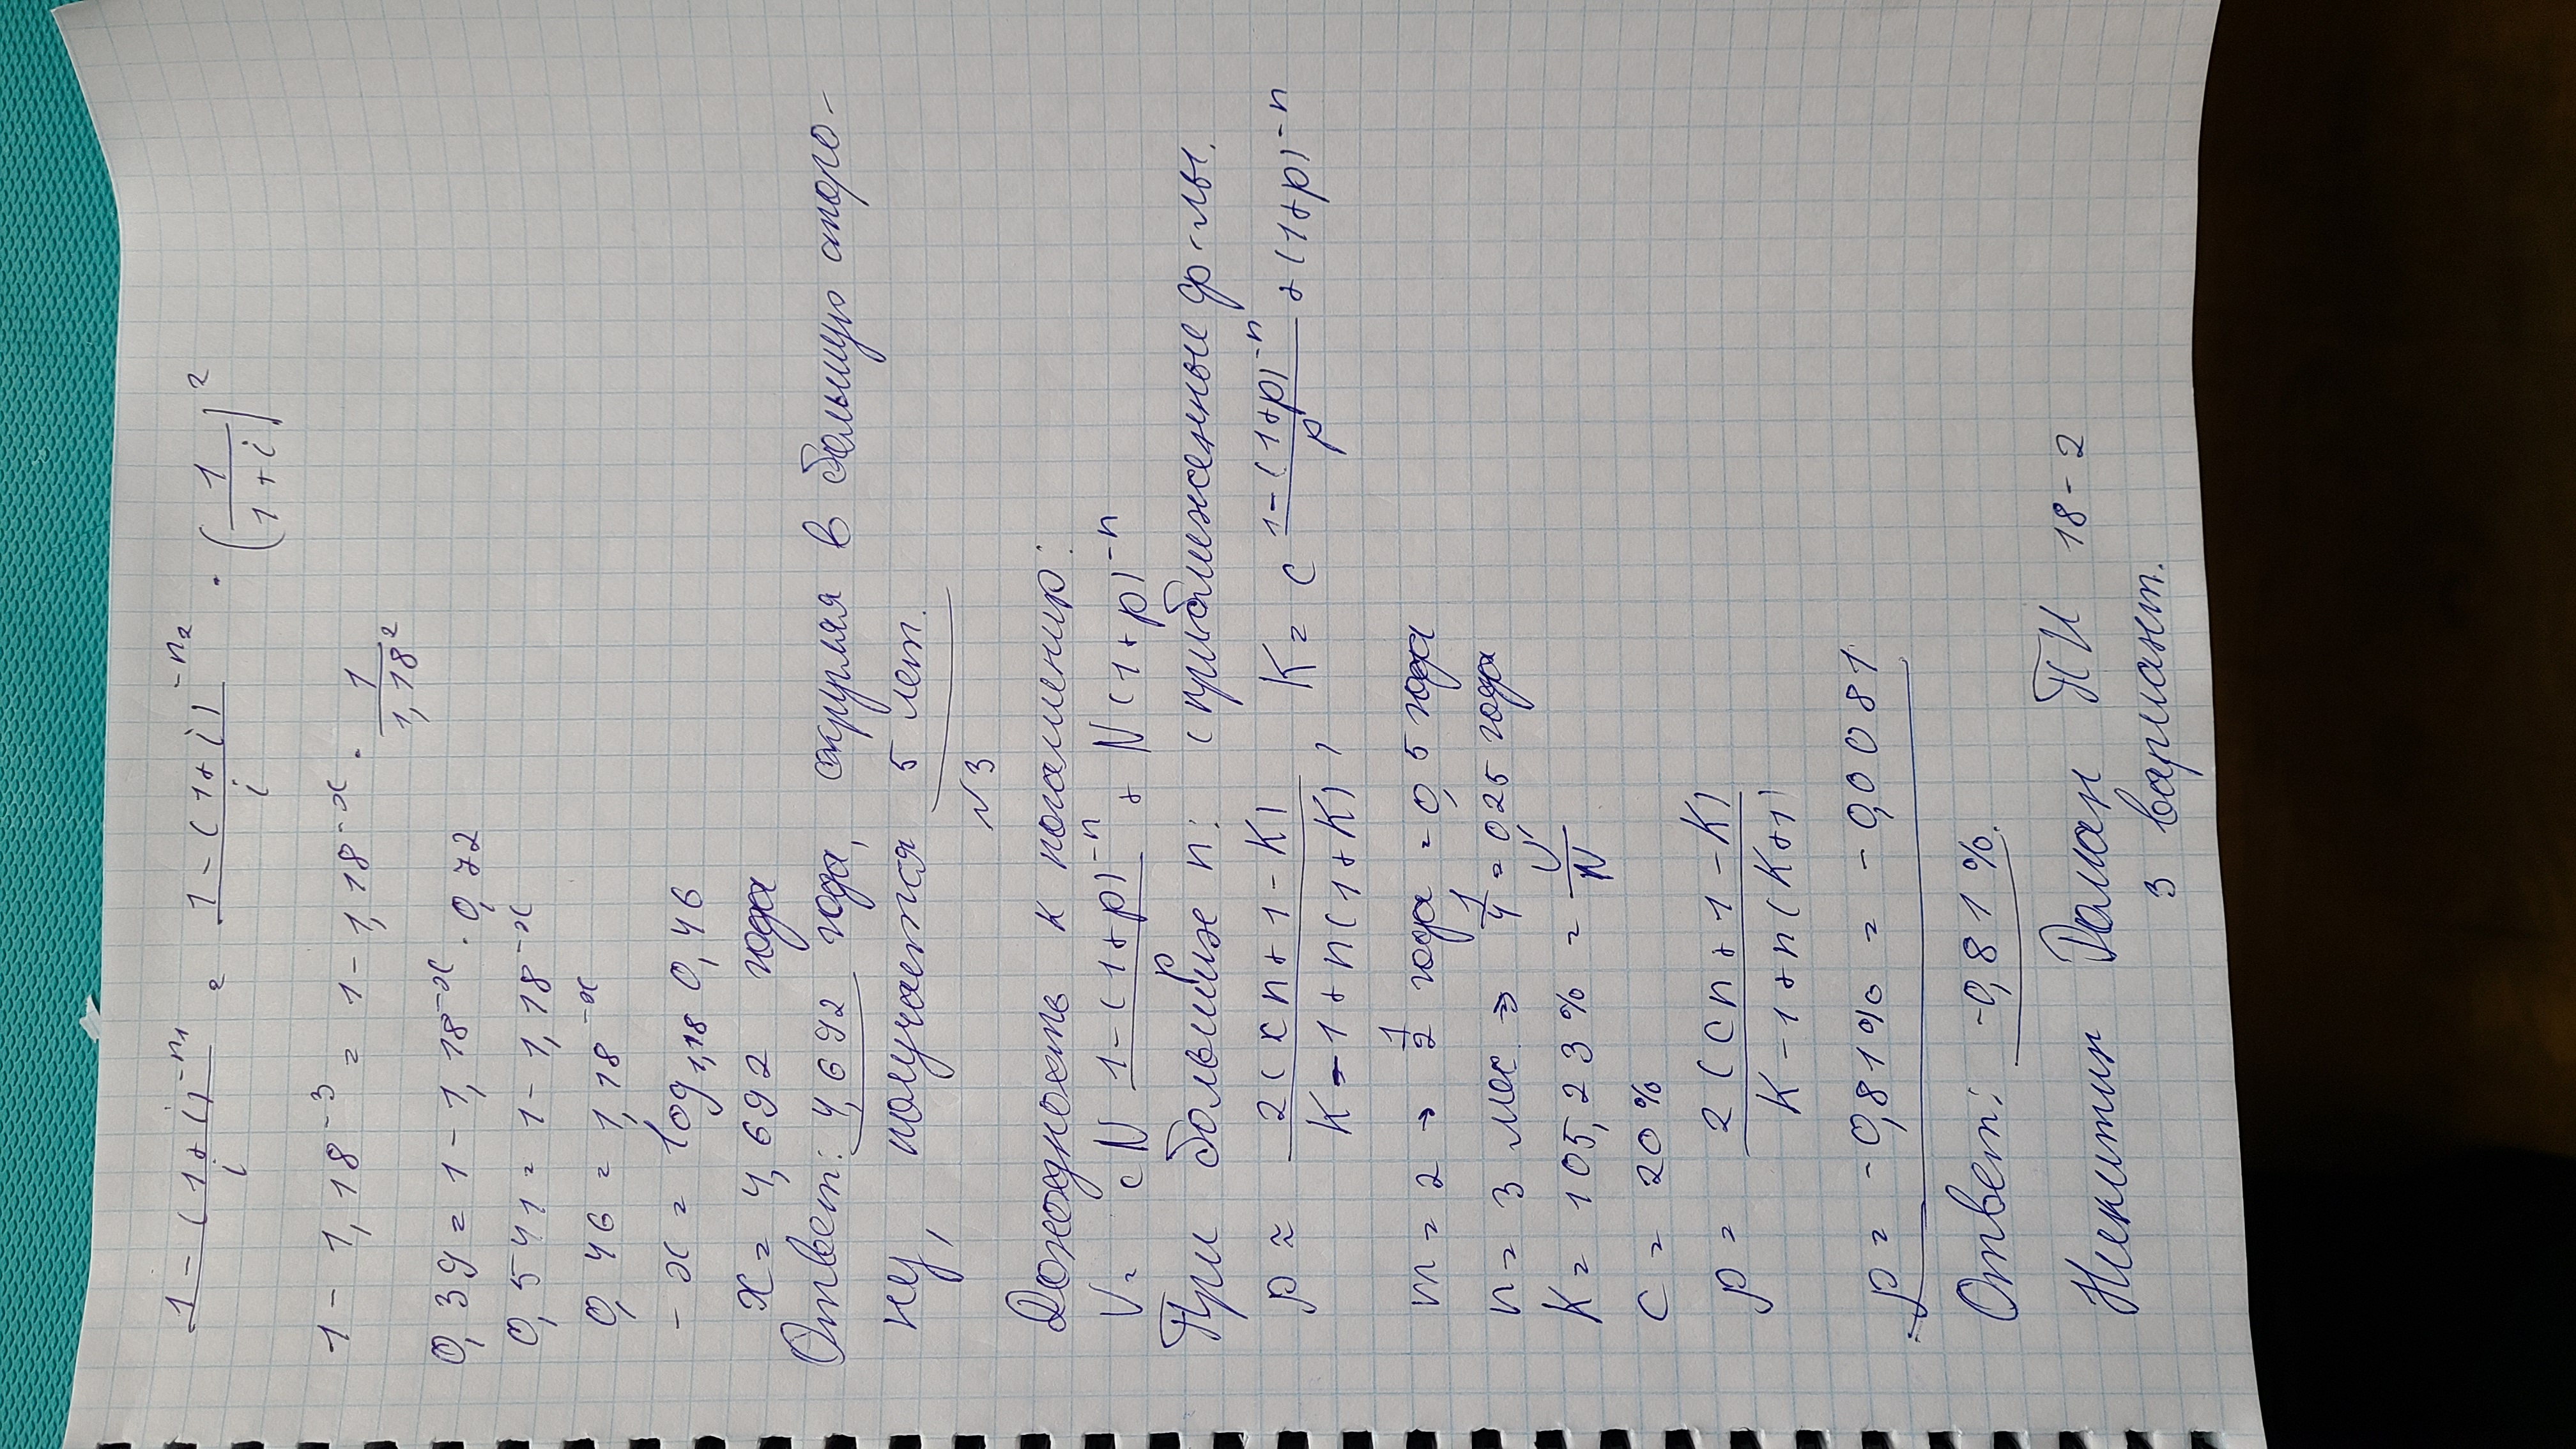 (1-(1+i)^-n₁)/i = (1-(1+i)^-n₂)/i · (1/(1+i))²
1-1,18^-3 = 1-1,18^-x · 1/1,18²
0,39 = 1-1,18^-x · 0,72
0,541 = 1-1,18^-x
0,46 = 1,18^-x
-x = log₁,₁₈ 0,46
x = 4,692 года
Ответ: 4,692 года, округляя в большую сторо-
ну, получается 5 лет.
√3
Доходность к погашению:
V = cN (1-(1+p)^-n)/p + N(1+p)^-n
При больших n: (приближенные ф-лы.
p ≈ 2(xn+1-K)/(K-1+n(1+K)), K = c (1-(1+p)^-n)/p + (1+p)^-n
m = 2 → 1/2 года = 0,5 года
n = 3 мес → 1/4 = 0,25 года
K = 105,23% = V/N
c = 20%
p = 2(cn+1-K)/(K-1+n(K+1))
p = -0,81% = -0,0081
Ответ: -0,81%.
Никитин Роман ПИ 18-2
3 вариант.